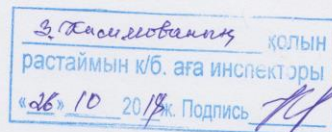 З. Касимованың қолын
растаймын к/б. аға инспекторы
«26» 10 2018ж. Подпись